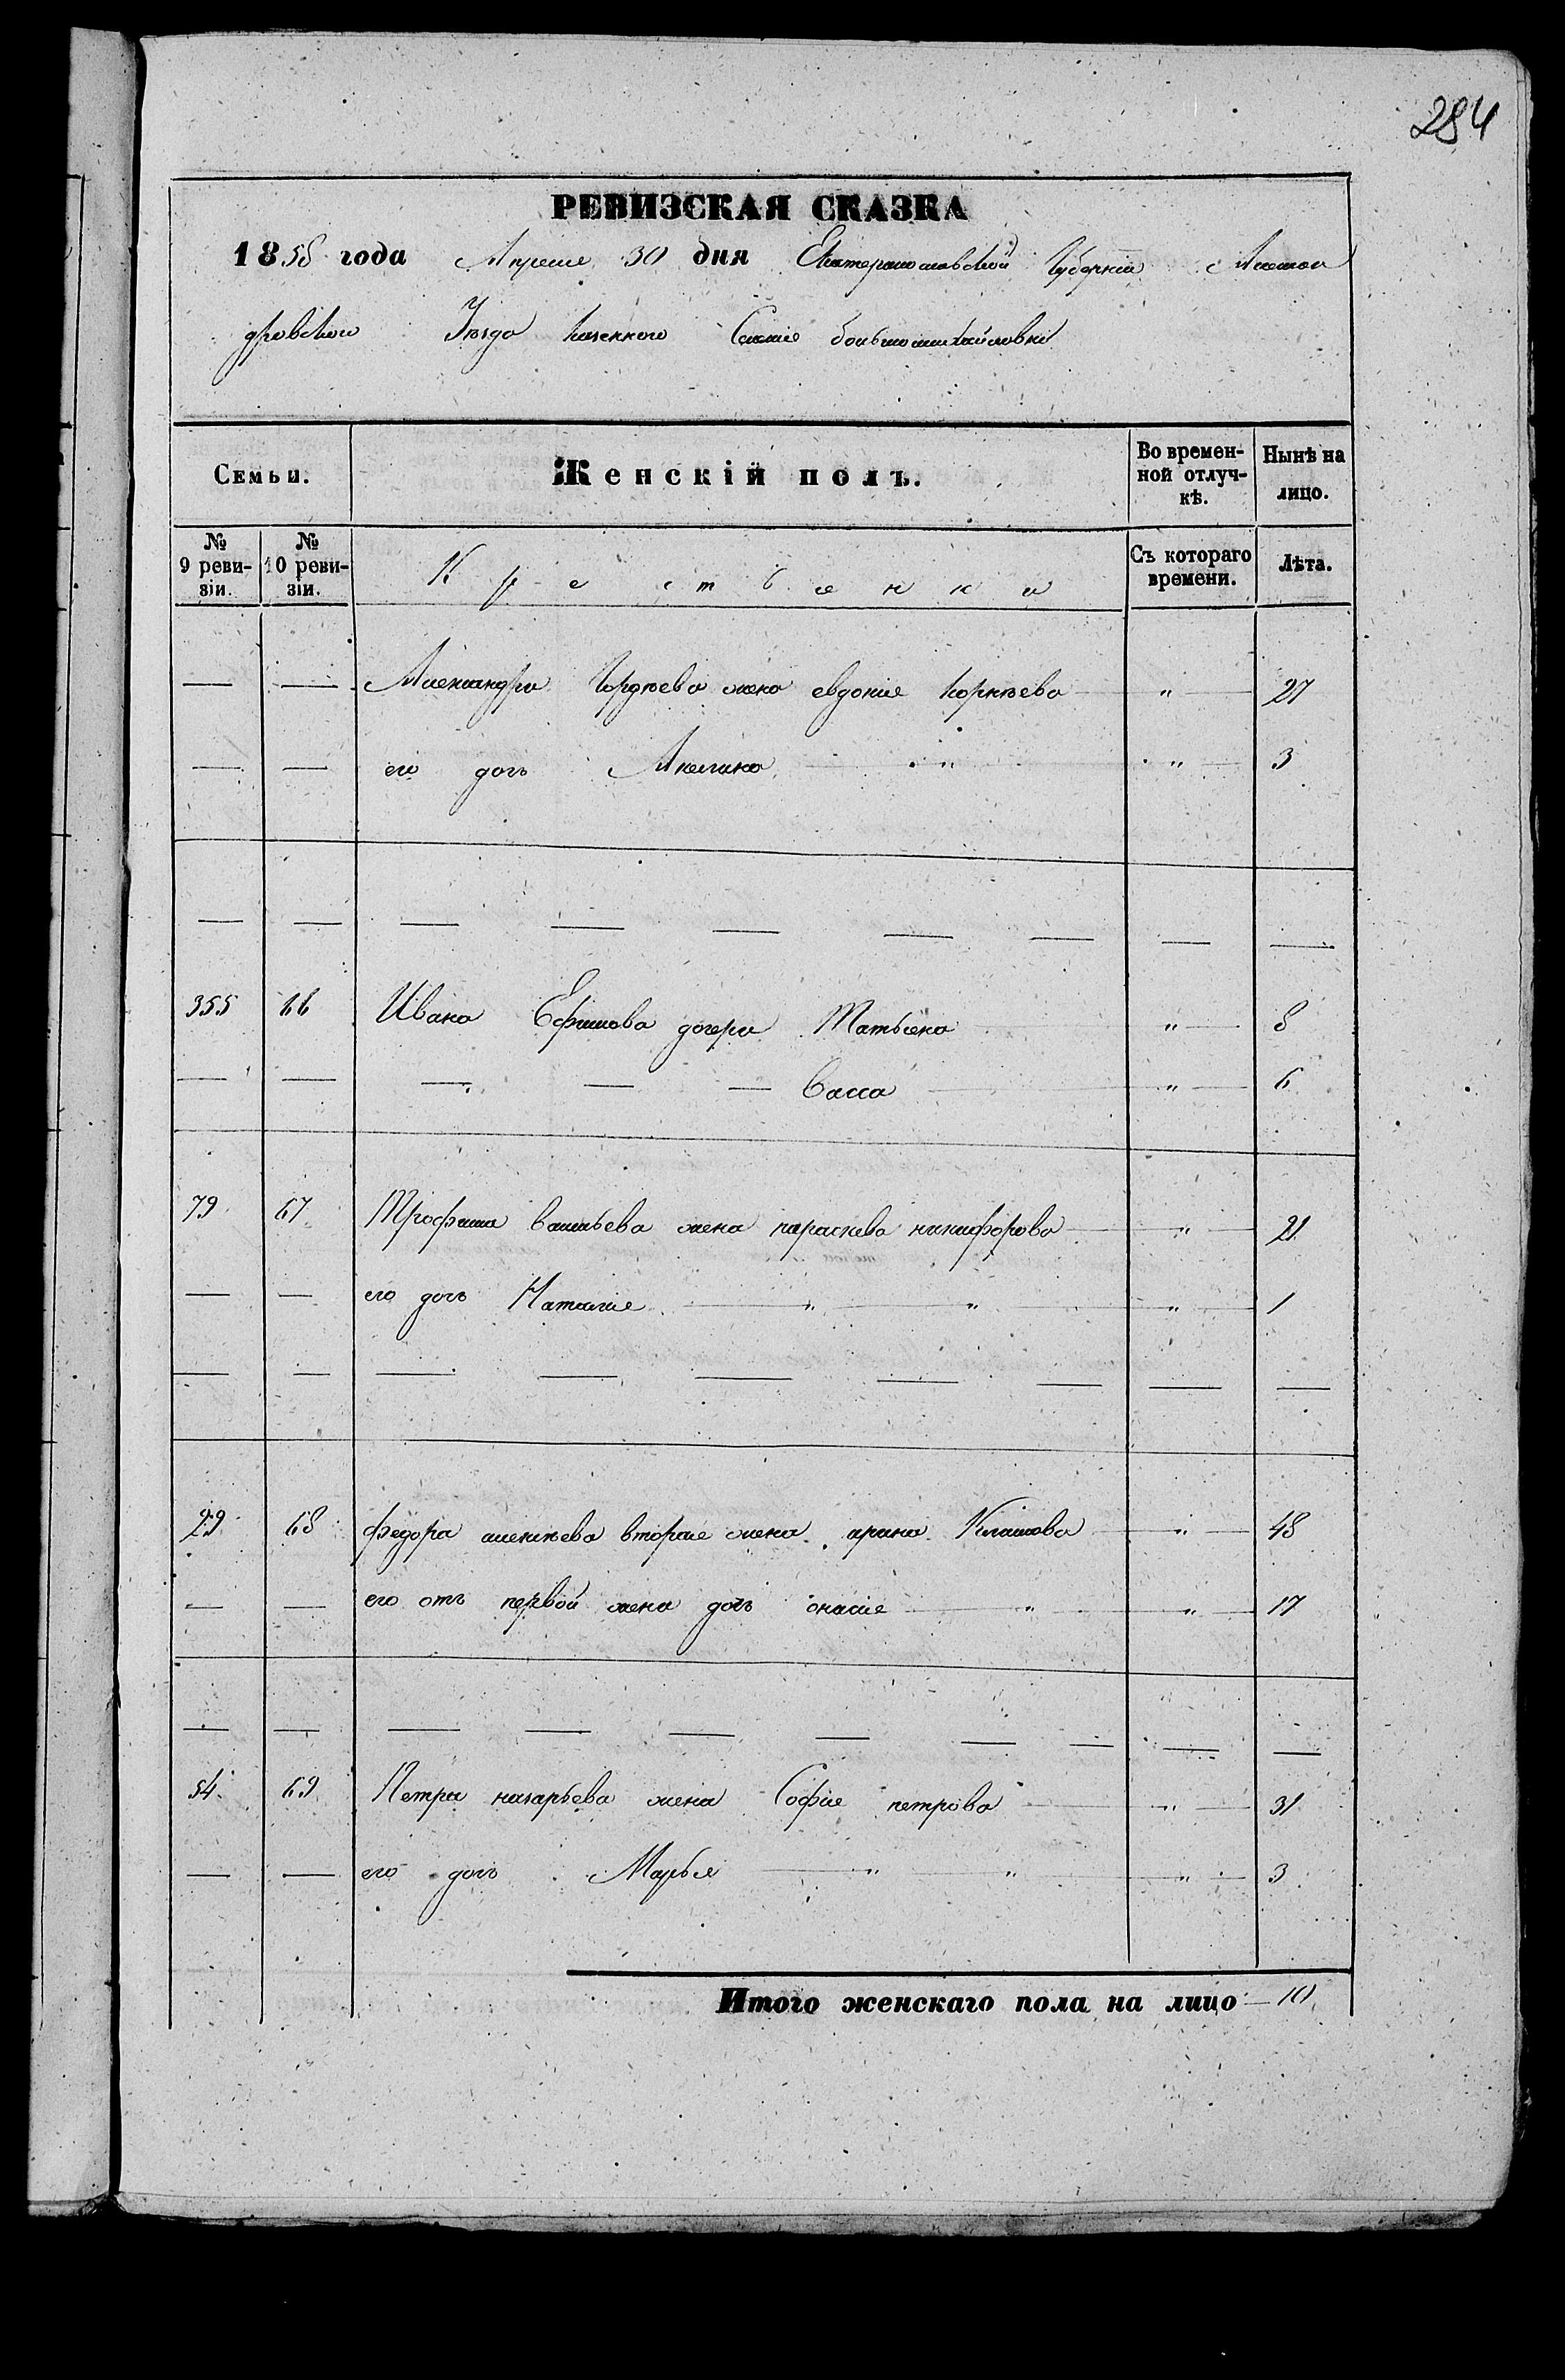 284
РЕВИЗСКАЯ СКАЗКА
1858 года Апреля 30 дня Екатеринославской Губернии Алексан
дровского Уезда казенного Селения большомихайловки
Семьи. Женскій полъ. Во времен-ной отлуч-кѣ. Нынѣ на лицо.
№ 9 реви-зіи. № 10 реви-зіи. Съ котораго времени. Лѣта.
— — Александра Гордѣева жена евдокия корнѣева — " — 27
— — его дочь Акилина — " — " — 3
— — — — — — — — —
355 66 Ивана Ефимова дочери Татьяна " — 8
— — — — — Васса — " — 6
79 67 Трофима васильева жена параскева никифорова — " — 21
— — его дочь Наталия — " — " — " — 1
— — — — — — — — —
29 68 федора алексѣева вторая жена арина Климова — " — 48
— — его отъ первой жена дочь — " — " — 17
— — — — — — — — — —
54 69 Петра назарьева жена София петрова — " — 31
— — его дочь Марья — " — " — " — 3
Итого женскаго пола на лицо — 10